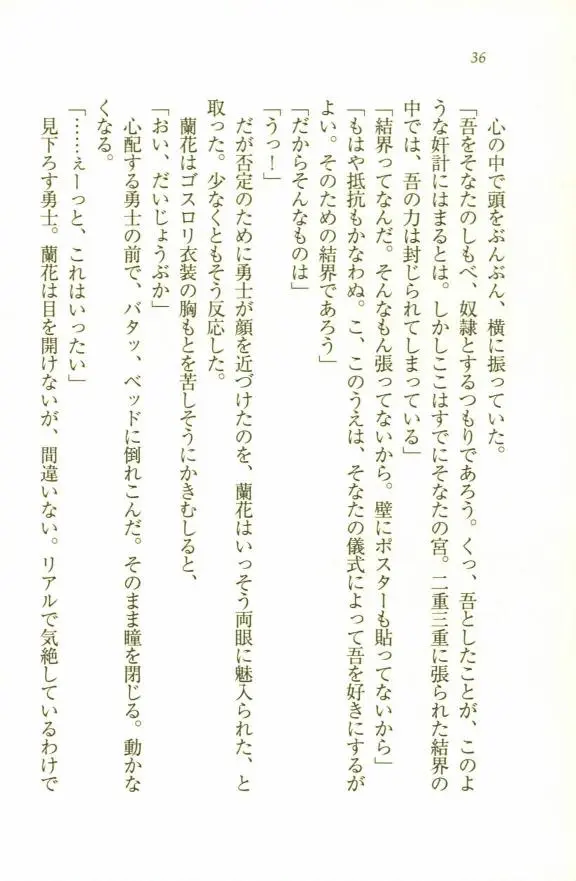 36
心の中で頭をぶんぶん、横に振っていた。
「吾をそなたのしもべ、奴隷とするつもりであろう。くっ、吾としたことが、このよ
うな奸計にはまるとは。しかしここはすでにそなたの宮。二重三重に張られた結界の
中では、吾の力は封じられてしまっている」
「結界ってなんだ。そんなもん張ってないから。壁にポスターも貼ってないから」
「もはや抵抗もかなわぬ。こ、このうえは、そなたの儀式によって吾を好きにするが
よい。そのための結界であろう」
「だからそんなものは」
「うっ！」
だが否定のために勇士が顔を近づけたのを、蘭花はいっそう両眼に魅入られた、と
取った。少なくともそう反応した。
蘭花はゴスロリ衣装の胸もとを苦しそうにかきむしると、
「おい、だいじょうぶか」
心配する勇士の前で、バタッ、ベッドに倒れこんだ。そのまま瞳を閉じる。動かな
くなる。
「……ぇーっと、これはいったい」
見下ろす勇士。蘭花は目を開けないが、間違いない。リアルで気絶しているわけで